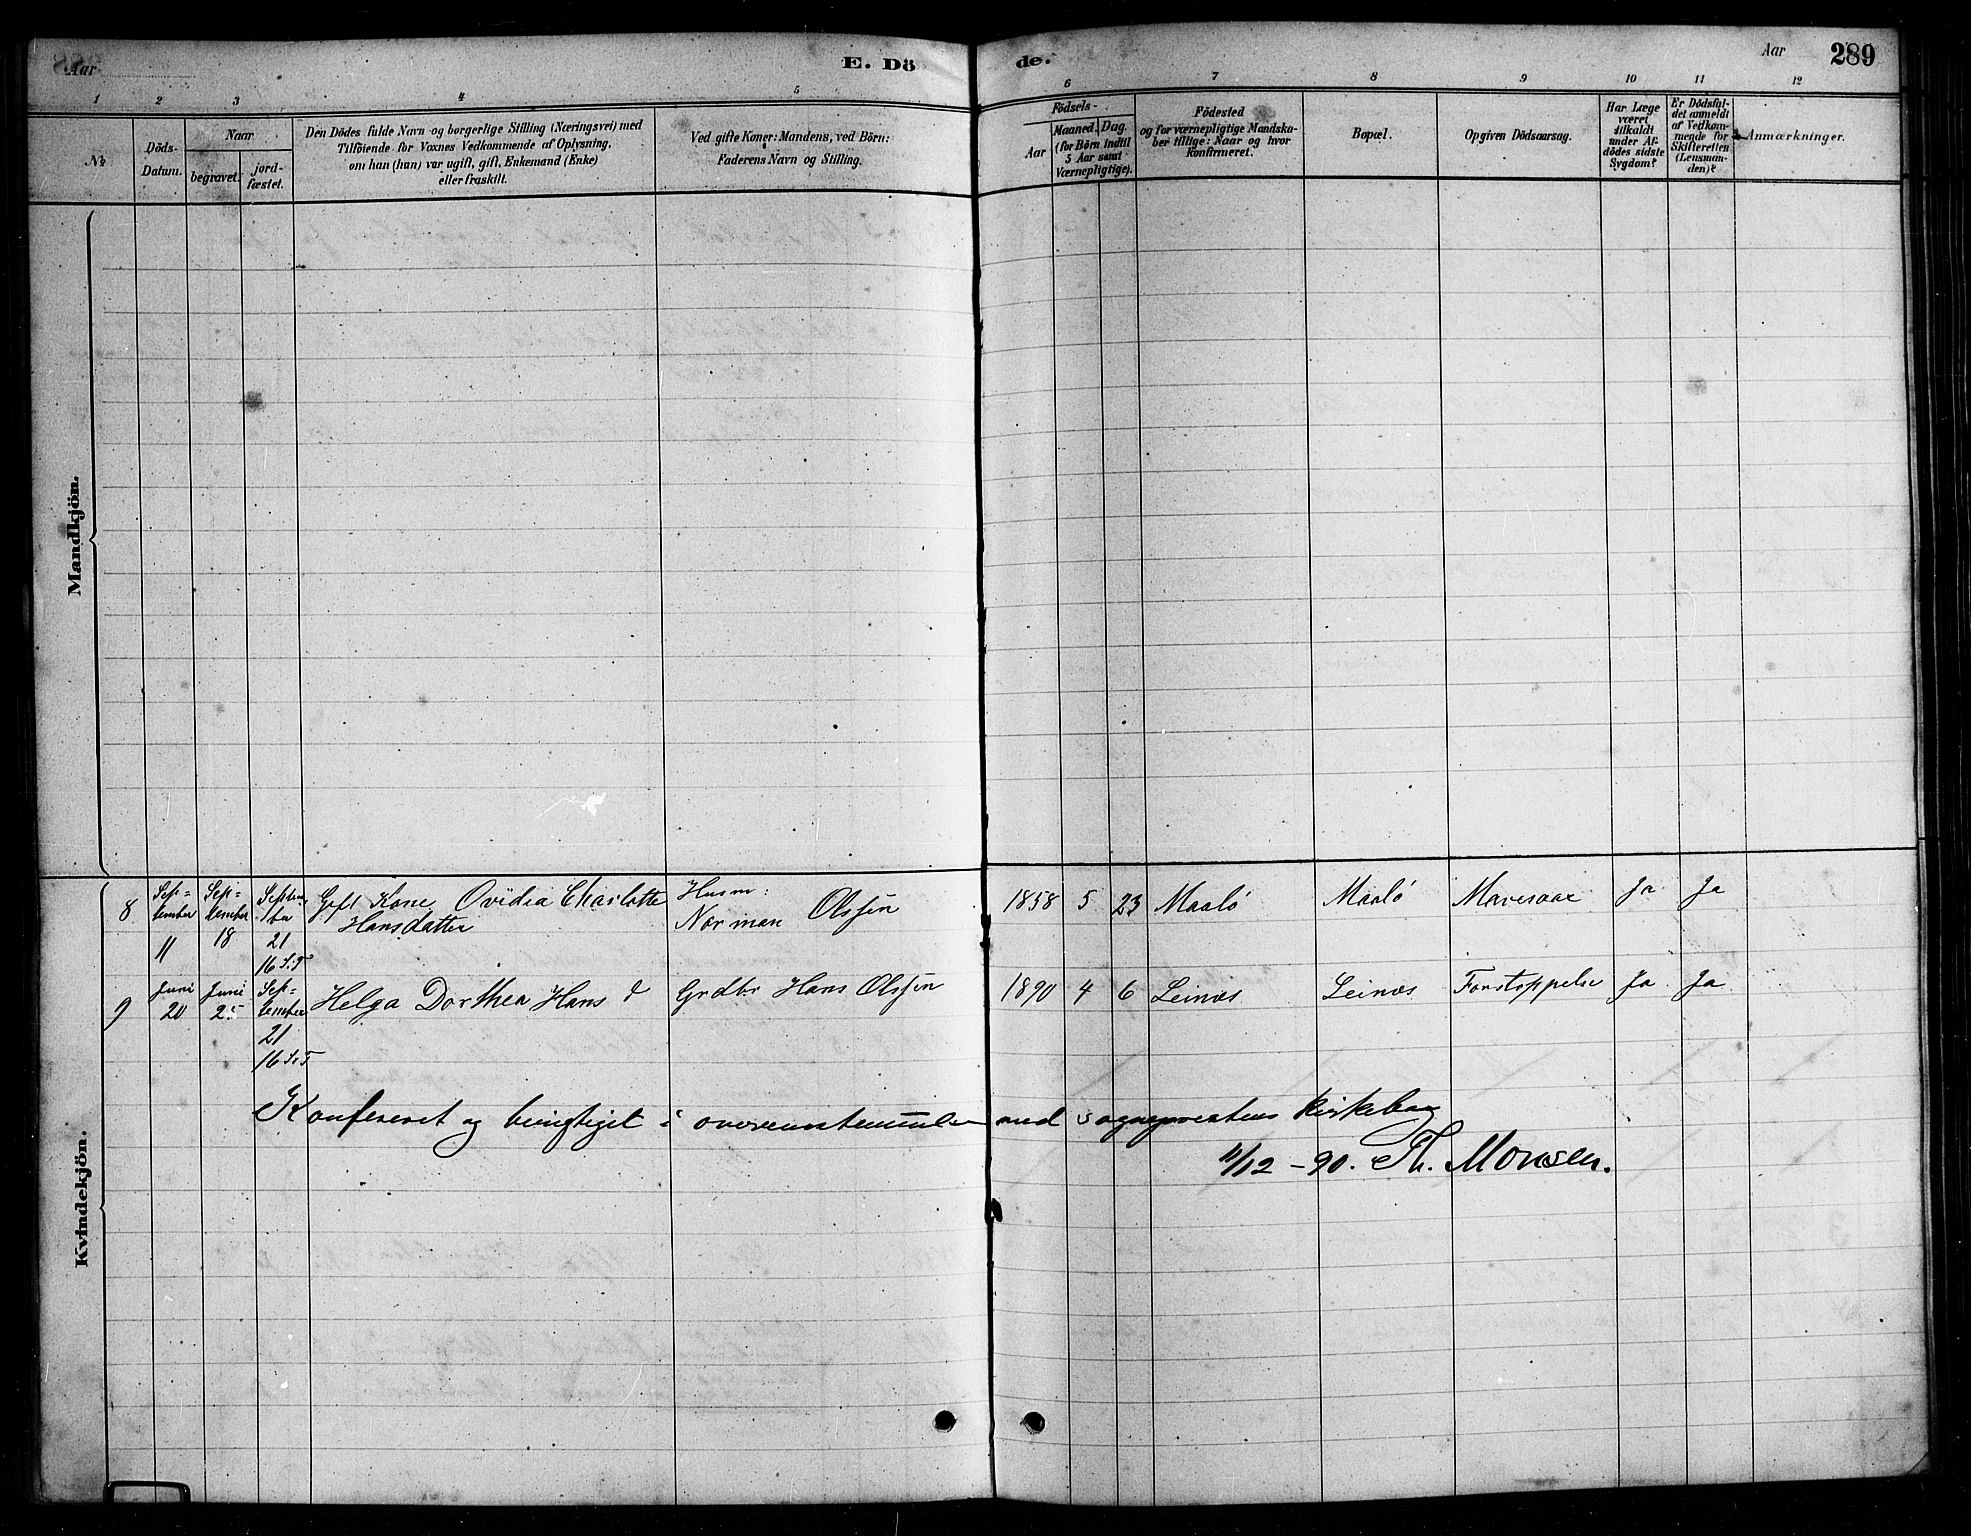 Aar
E. Dö
de.
Aar
289
1 2 3 4 5 6 7 8 9 10 11 12
No
Döds-
Datum.
Naar
begravet.
jord-
fæstet.
Den Dödes fulde Navn og borgerlige Stilling (Næringsvei) med
Tilföiende for Voxnes Vedkommende af Oplysning,
om han (hun) var ugift, gift, Enkemand (Enke)
eller fraskilt.
Ved gifte Koner: Mandens, ved Börn:
Faderens Navn og Stilling.
Födsels-
Aar
Maaned. Dag.
(for Börn indtil
5 Aar samt
Værnepligtige).
Födested
og for værnepligtige Mandska-
ber tillige: Naar og hvor
Konfirmeret.
Bopæl.
Opgiven Dödsaarsag.
Har Læge
været
tilkaldt
under Af-
dödes sidste
Sygdom?
Er Dödsfal-
det anmeldt
af Vedkom-
mende for
Skifteretten
(Lensman-
den)?
Anmærkninger.
Mandkjön.
Kvindekjön.
8
Sep-
tember
11
Sep-
tember
18
21
16 S.:T
Gift Kone Ovidia Charlotte
Hansdatter
Husm:
Norman Olssen
1858 5 23 Maalö Maalö Mavesaar Ja Ja
9
Juni
20
Juni
25
Sep-
tember
21
16 S.:T
Helga Dorthea Hans d
Grdbr Hans Olssen
1890 4 6 Leinæs Leinæs Forstoppelse Ja Ja
Konfereret og berigtiget i overensstemmelse med sogneprestens kirkebog
11/12 -90. Th. Monsen.